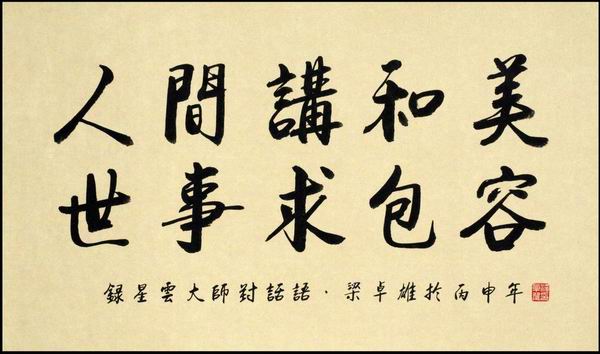 人間講和美
世事求包容
錄星雲大師對話語・梁卓雄於丙申年